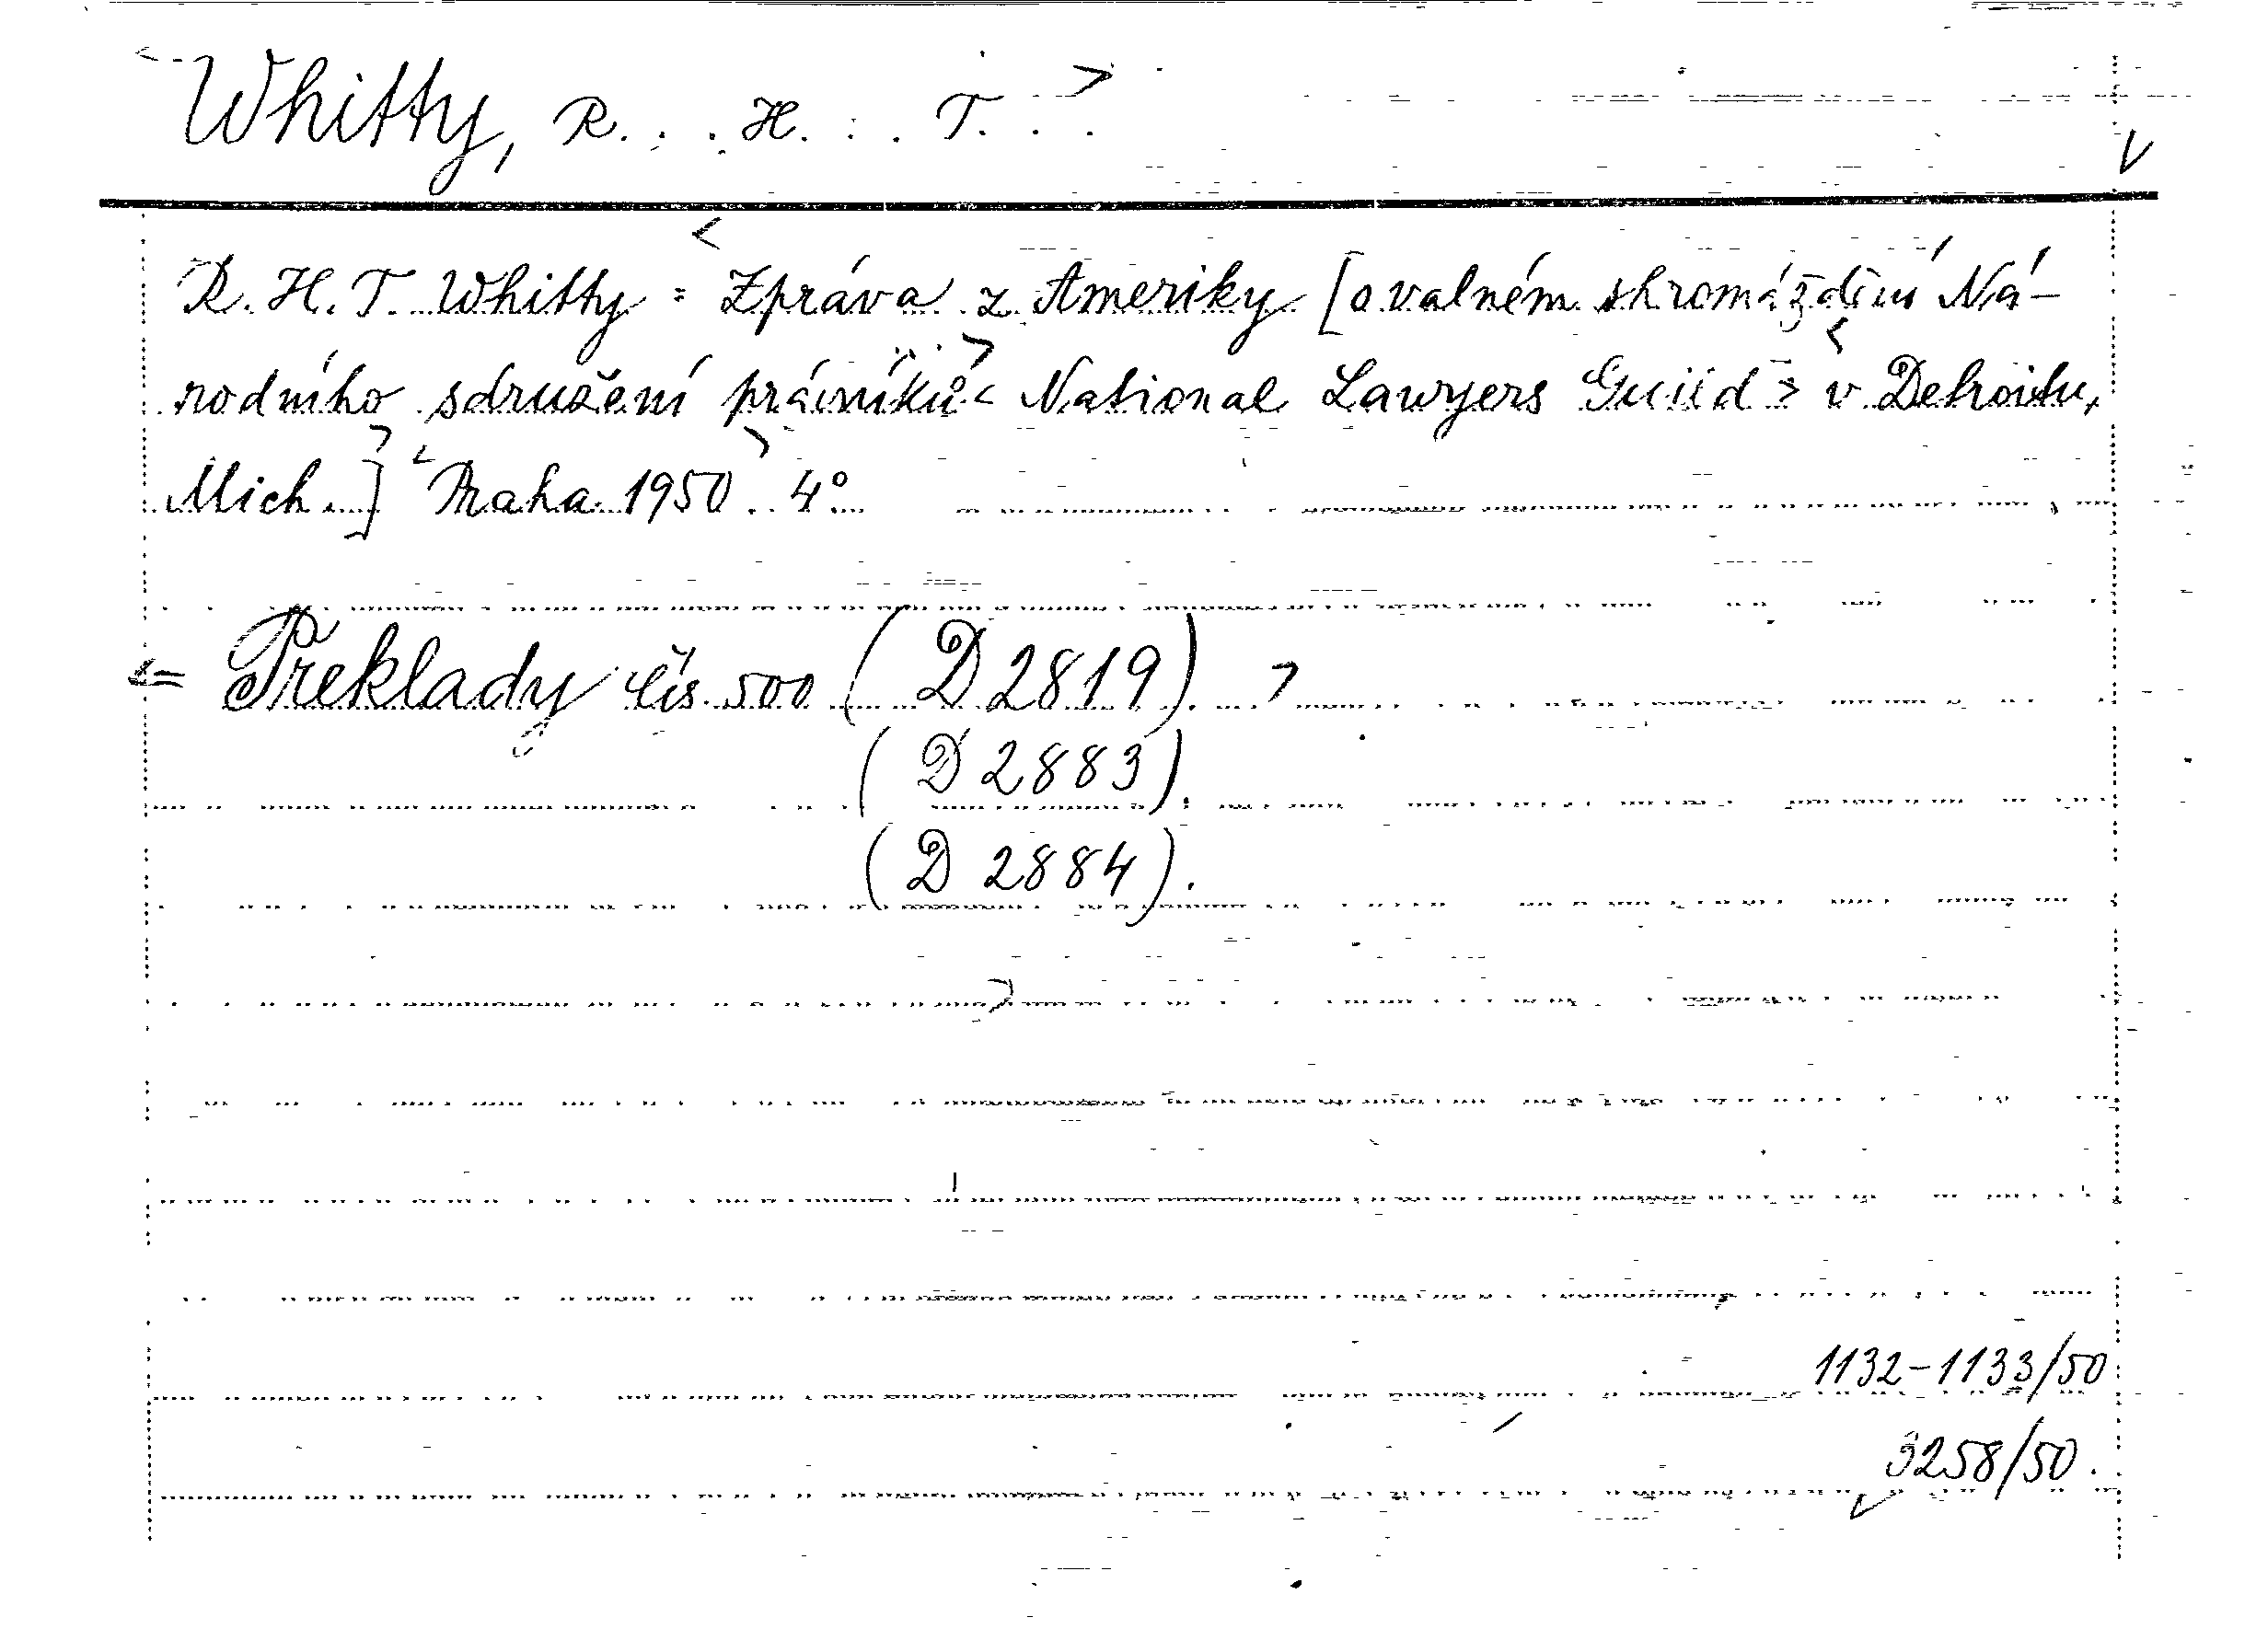 Whitty, R... H... T...
R. H. T. Whitty: Zpráva z Ameriky [o valném shromáždění Ná-
rodního sdružení právníků < National Lawyers Guild > v Detroitu,
Mich.] Praha 1950. 4°
= Překlady čís. 500 (D 2819).
(D 2883).
(D 2884).
1132-1133/50
3258/50.